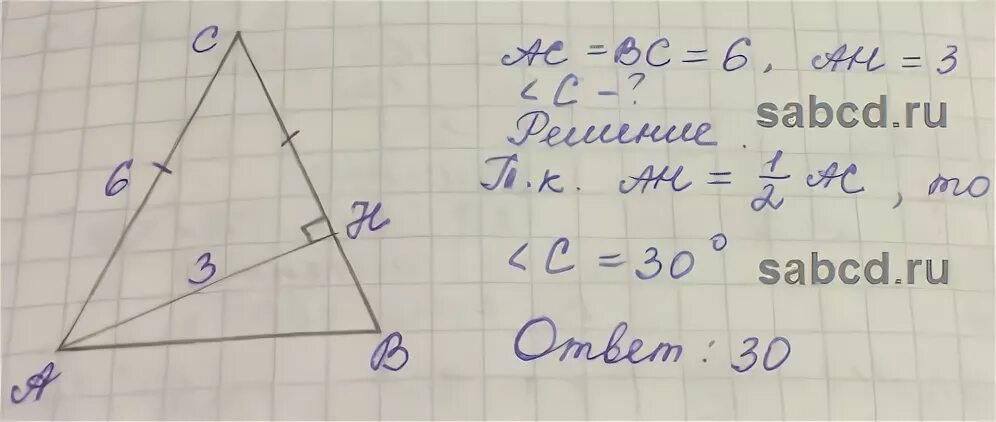 C
6
H
3
A
B
AC = BC = 6, AH = 3
<C - ?
sabcd.ru
Решение.
Т.к. AH = 1/2 AC, то
<C = 30°
sabcd.ru
Ответ: 30